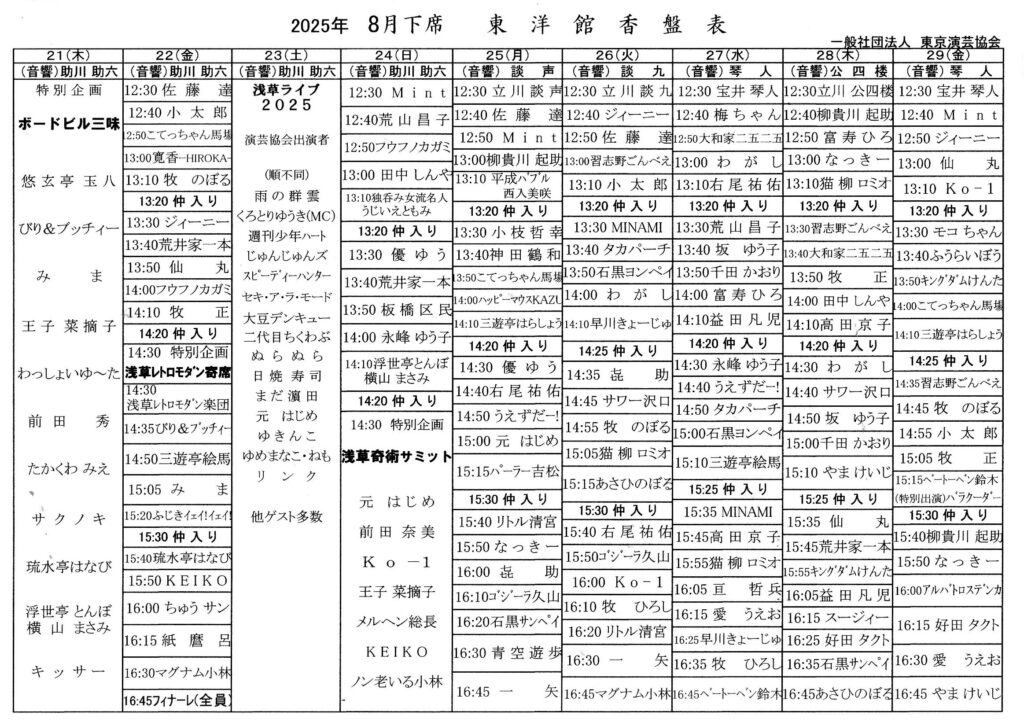 2025年 8月下席 東洋館香盤表
一般社団法人 東京演芸協会
21(木)
(音響)助川 助六
特別企画
ボードビル三昧
悠玄亭 玉八
びり&ブッチィー
みま
王子 菜摘子
わっしょいゆ〜た
前田 秀
たかくわ みえ
サクノキ
琉水亭はなび
浮世亭 とんぼ
横山 まさみ
キッサー
22(金)
(音響)助川 助六
12:30 佐藤 達
12:40 小太郎
12:50こてっちゃん馬場
13:00寛香-HIROKA-
13:10 牧 のぼる
13:20 仲入り
13:30 ジィーニー
13:40荒井家一本
13:50 仙丸
14:00フウフノカガミ
14:10 牧 正
14:20 仲入り
14:30 特別企画
浅草レトロモダン寄席
14:30
浅草レトロモダン楽団
14:35びり&ブッチィー
14:50三遊亭絵馬
15:05 みま
15:20ふじきイェイ!イェイ!
15:30 仲入り
15:40琉水亭はなび
15:50 KEIKO
16:00 ちゅうサン
16:15 紙麿呂
16:30マグナム小林
16:45フィナーレ(全員)
23(土)
(音響)助川 助六
浅草ライブ
2025
演芸協会出演者
(順不同)
雨の群雲
くろとりゆうき(MC)
週刊少年ハート
じゅんじゅんズ
スピーディーハンター
セキ・ア・ラ・モード
大豆デンキュー
二代目ちくわぶ
ぬらぬら
日焼寿司
まだ濵田
元 はじめ
ゆきんこ
ゆめまなこ・ねも
リンク
他ゲスト多数
24(日)
(音響)助川 助六
12:30 Mint
12:40荒山昌子
12:50フウフノカガミ
13:00 田中しんや
13:10独呑み女流名人
うじいえともみ
13:20 仲入り
13:30 優ゆう
13:40荒井家一本
13:50 板橋区民
14:00 永峰 ゆう子
14:10浮世亭とんぼ
横山 まさみ
14:20 仲入り
14:30 特別企画
浅草奇術サミット
元 はじめ
前田 奈美
Ko-1
王子 菜摘子
メルヘン総長
KEIKO
ノン老いる小林
25(月)
(音響) 談声
12:30 立川談声
12:40 佐藤 達
12:50 Mint
13:00柳貴川 起助
13:10 平成バブル
西入美咲
13:20 仲入り
13:30 小枝哲幸
13:40神田鶴和
13:50こてっちゃん馬場
14:00ハッピーマウスKAZU
14:10三遊亭はらしょう
14:20 仲入り
14:30 優ゆう
14:40右尾祐佑
14:50うえずだー!
15:00 元 はじめ
15:15パーラー吉松
15:30 仲入り
15:40 リトル清宮
15:50 なっきー
16:00 㐂助
16:10ゴジーラ久山
16:20石黒サンペイ
16:30 青空遊歩
16:45 一矢
26(火)
(音響) 談九
12:30 立川談九
12:40 ジィーニー
12:50 佐藤 達
13:00習志野ごんべえ
13:10 小太郎
13:20 仲入り
13:30 MINAMI
13:40 タカパーチ
13:50石黒ヨンペイ
14:00 わがし
14:10早川きょーじゅ
14:25 仲入り
14:35 㐂助
14:45 サワー沢口
14:55 牧 のぼる
15:05猫柳 ロミオ
15:15あさひのぼる
15:30 仲入り
15:40 右尾祐佑
15:50ゴジーラ久山
16:00 Ko-1
16:10 牧 ひろし
16:20 リトル清宮
16:30 一矢
16:45マグナム小林
27(水)
(音響) 琴人
12:30 宝井琴人
12:40 梅ちゃん
12:50大和家二五二五
13:00 わがし
13:10右尾祐佑
13:20 仲入り
13:30荒山昌子
13:40 坂 ゆう子
13:50千田かおり
14:00 富寿ひろ
14:10益田凡児
14:20 仲入り
14:30 永峰 ゆう子
14:40うえずだー!
14:50 タカパーチ
15:00石黒ヨンペイ
15:10三遊亭絵馬
15:25 仲入り
15:35 MINAMI
15:45高田京子
15:55猫柳 ロミオ
16:05 亘 哲兵
16:15愛 うえお
16:25早川きょーじゅ
16:35 牧 ひろし
16:45ベートーベン鈴木
28(木)
(音響)公四楼
12:30立川 公四楼
12:40柳貴川 起助
12:50 富寿ひろ
13:00 なっきー
13:10猫柳 ロミオ
13:20 仲入り
13:30習志野ごんべえ
13:40大和家二五二五
13:50 牧 正
14:00 田中しんや
14:10高田京子
14:20 仲入り
14:30 わがし
14:40 サワー沢口
14:50 坂 ゆう子
15:00千田かおり
15:10 やまけいじ
15:25 仲入り
15:35 仙丸
15:45荒井家一本
15:55キングダムけんた
16:05益田凡児
16:15 スージィー
16:25 好田タクト
16:35石黒サンペイ
16:45あさひのぼる
29(金)
(音響) 琴人
12:30 宝井琴人
12:40 Mint
12:50 ジィーニー
13:00 仙丸
13:10 Ko-1
13:20 仲入り
13:30 モコちゃん
13:40ふうらいぼう
13:50キングダムけんた
14:00こてっちゃん馬場
14:10三遊亭はらしょう
14:25 仲入り
14:35習志野ごんべえ
14:45 牧 のぼる
14:55 小太郎
15:05 牧 正
15:15ベートーベン鈴木
(特別出演)パラクーダー
15:30 仲入り
15:40柳貴川 起助
15:50 なっきー
16:00アルバトロスデンカ
16:15 好田タクト
16:30 愛 うえお
16:45 やまけいじ